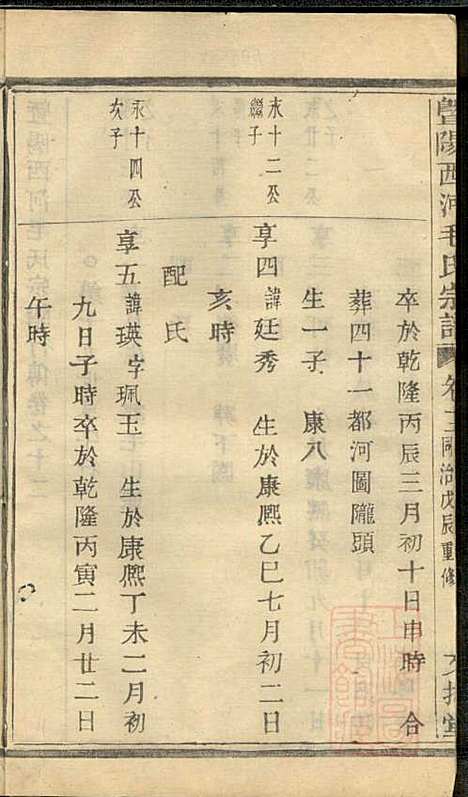 暨陽西河毛氏宗譜 卷 同治戊辰重修
卒於乾隆丙辰三月初十日申時 合
葬四十一都河圖隴頭
生一子 康八
永十二公
繼子
享四諱廷秀 生於康熙乙巳七月初二日
亥時
配氏
永十四公
次子
享五諱瑛字珮玉 生於康熙丁未二月初
九日子時卒於乾隆丙寅二月廿二日
午時